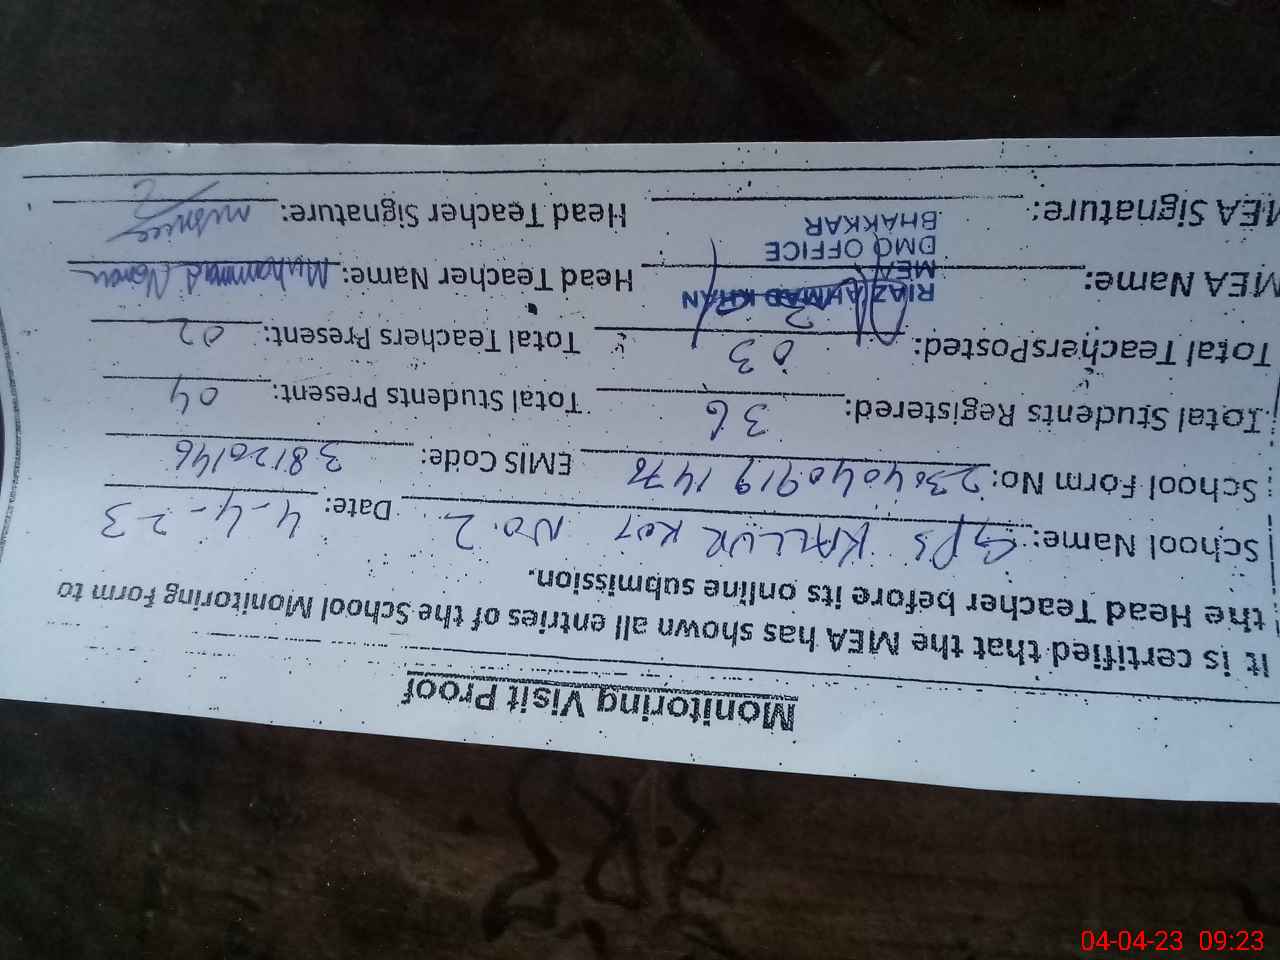 Monitoring Visit Proof
It is certified that the MEA has shown all entries of the School Monitoring Form to
the Head Teacher before its online submission.
School Name: GPS KALLUR KOT NO. 2 Date: 4-4-23
School Form No: 23040409191470 EMIS Code: 38120146
Total Students Registered: 36 Total Students Present: 04
Total TeachersPosted: 03 Total Teachers Present: 02
MEA Name: RIAZ AHMAD KHAN Head Teacher Name: Muhammad
MEA
DMO OFFICE
BHAKKAR
MEA Signature: Head Teacher Signature:
04-04-23 09:23